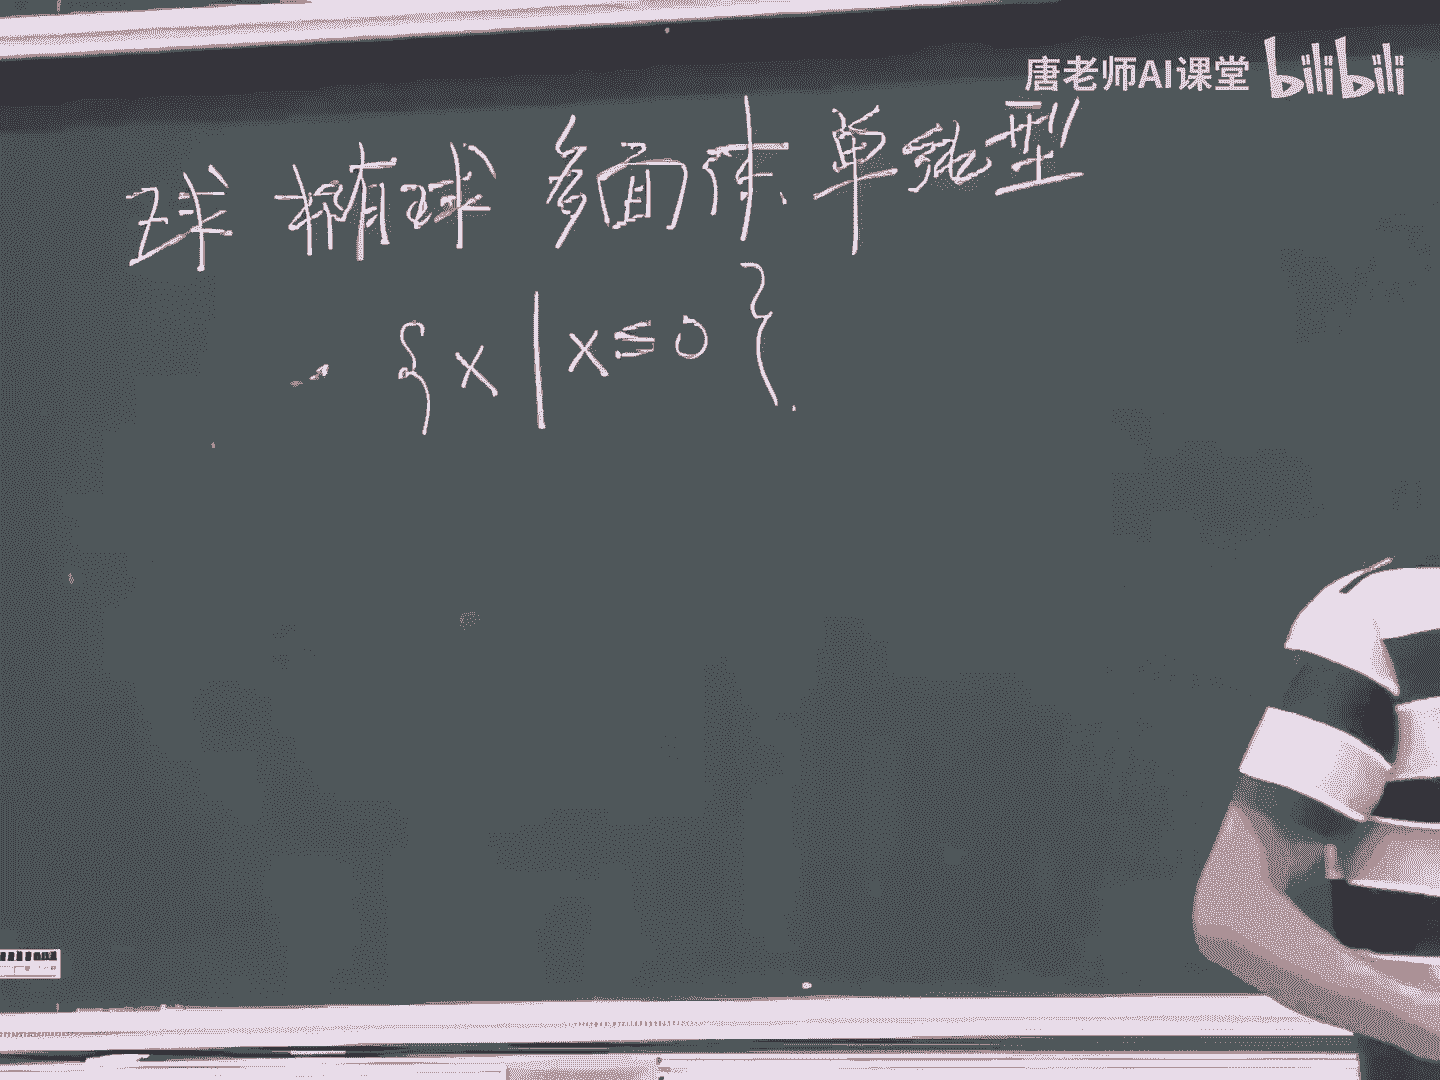 唐老师AI课堂 bilibili
球 椭球 多面体、单纯型
{x | x ≤ 0}.